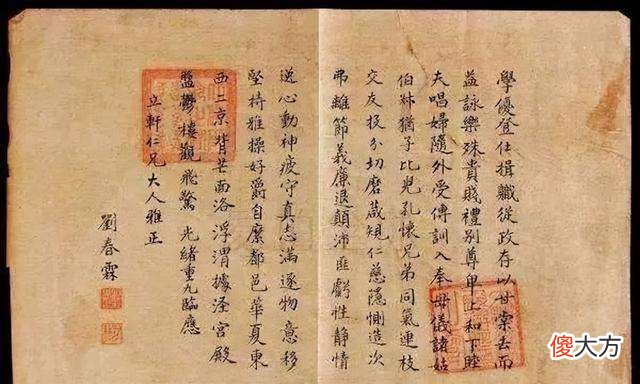 學優登仕攝職從政存以甘棠去而
益詠樂殊貴賤禮別尊卑上和下睦
夫唱婦隨外受傅訓入奉母儀諸姑
伯叔猶子比兒孔懷兄弟同氣連枝
交友投分切磨箴規仁慈隱惻造次
弗離節義廉退顛沛匪虧性靜情
逸心動神疲守真志滿逐物意移
堅持雅操好爵自縻都邑華夏東
西二京背芒面洛浮渭據涇宮殿
盤鬱樓觀飛驚 光緒重九臨應
立軒仁兄大人雅正
劉春霖
傻大方